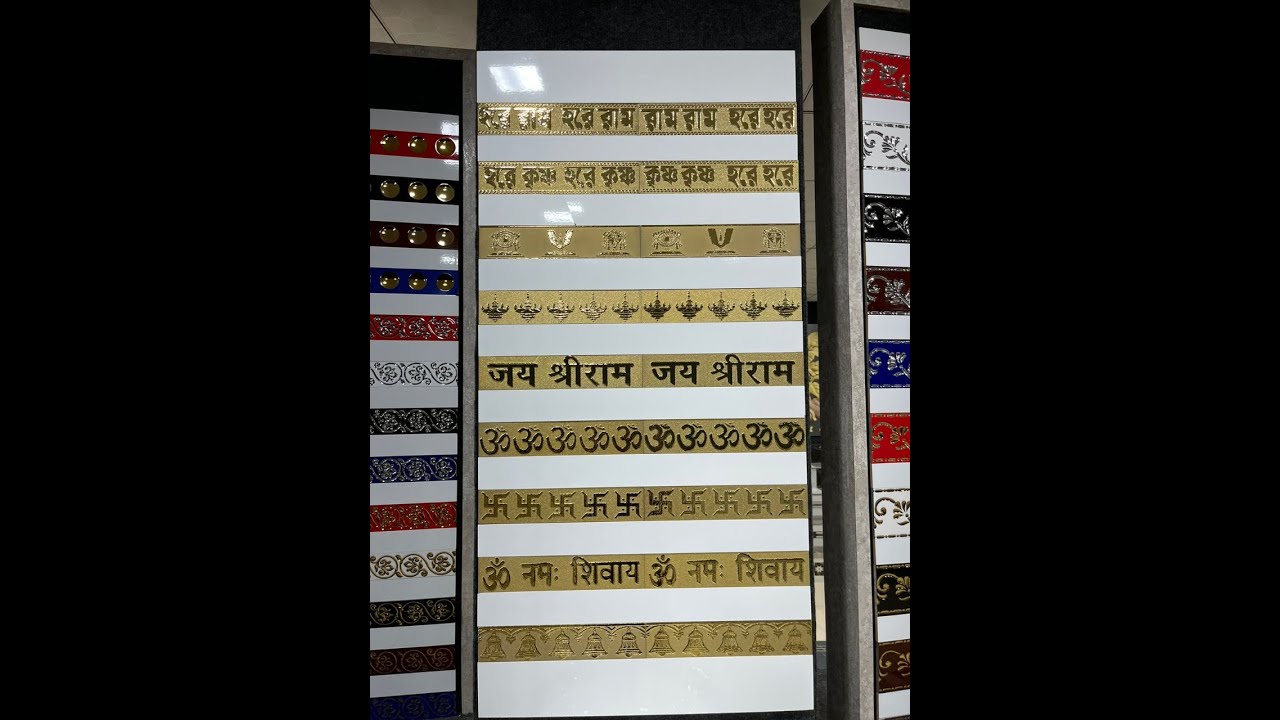 হরে রাম হরে রাম রাম রাম হরে হরে
হরে কৃষ্ণ হরে কৃষ্ণ কৃষ্ণ কৃষ্ণ হরে হরে
जय श्रीराम जय श्रीराम
ॐ ॐ ॐ ॐ ॐ ॐ ॐ ॐ ॐ ॐ
ॐ नमः शिवाय ॐ नमः शिवाय